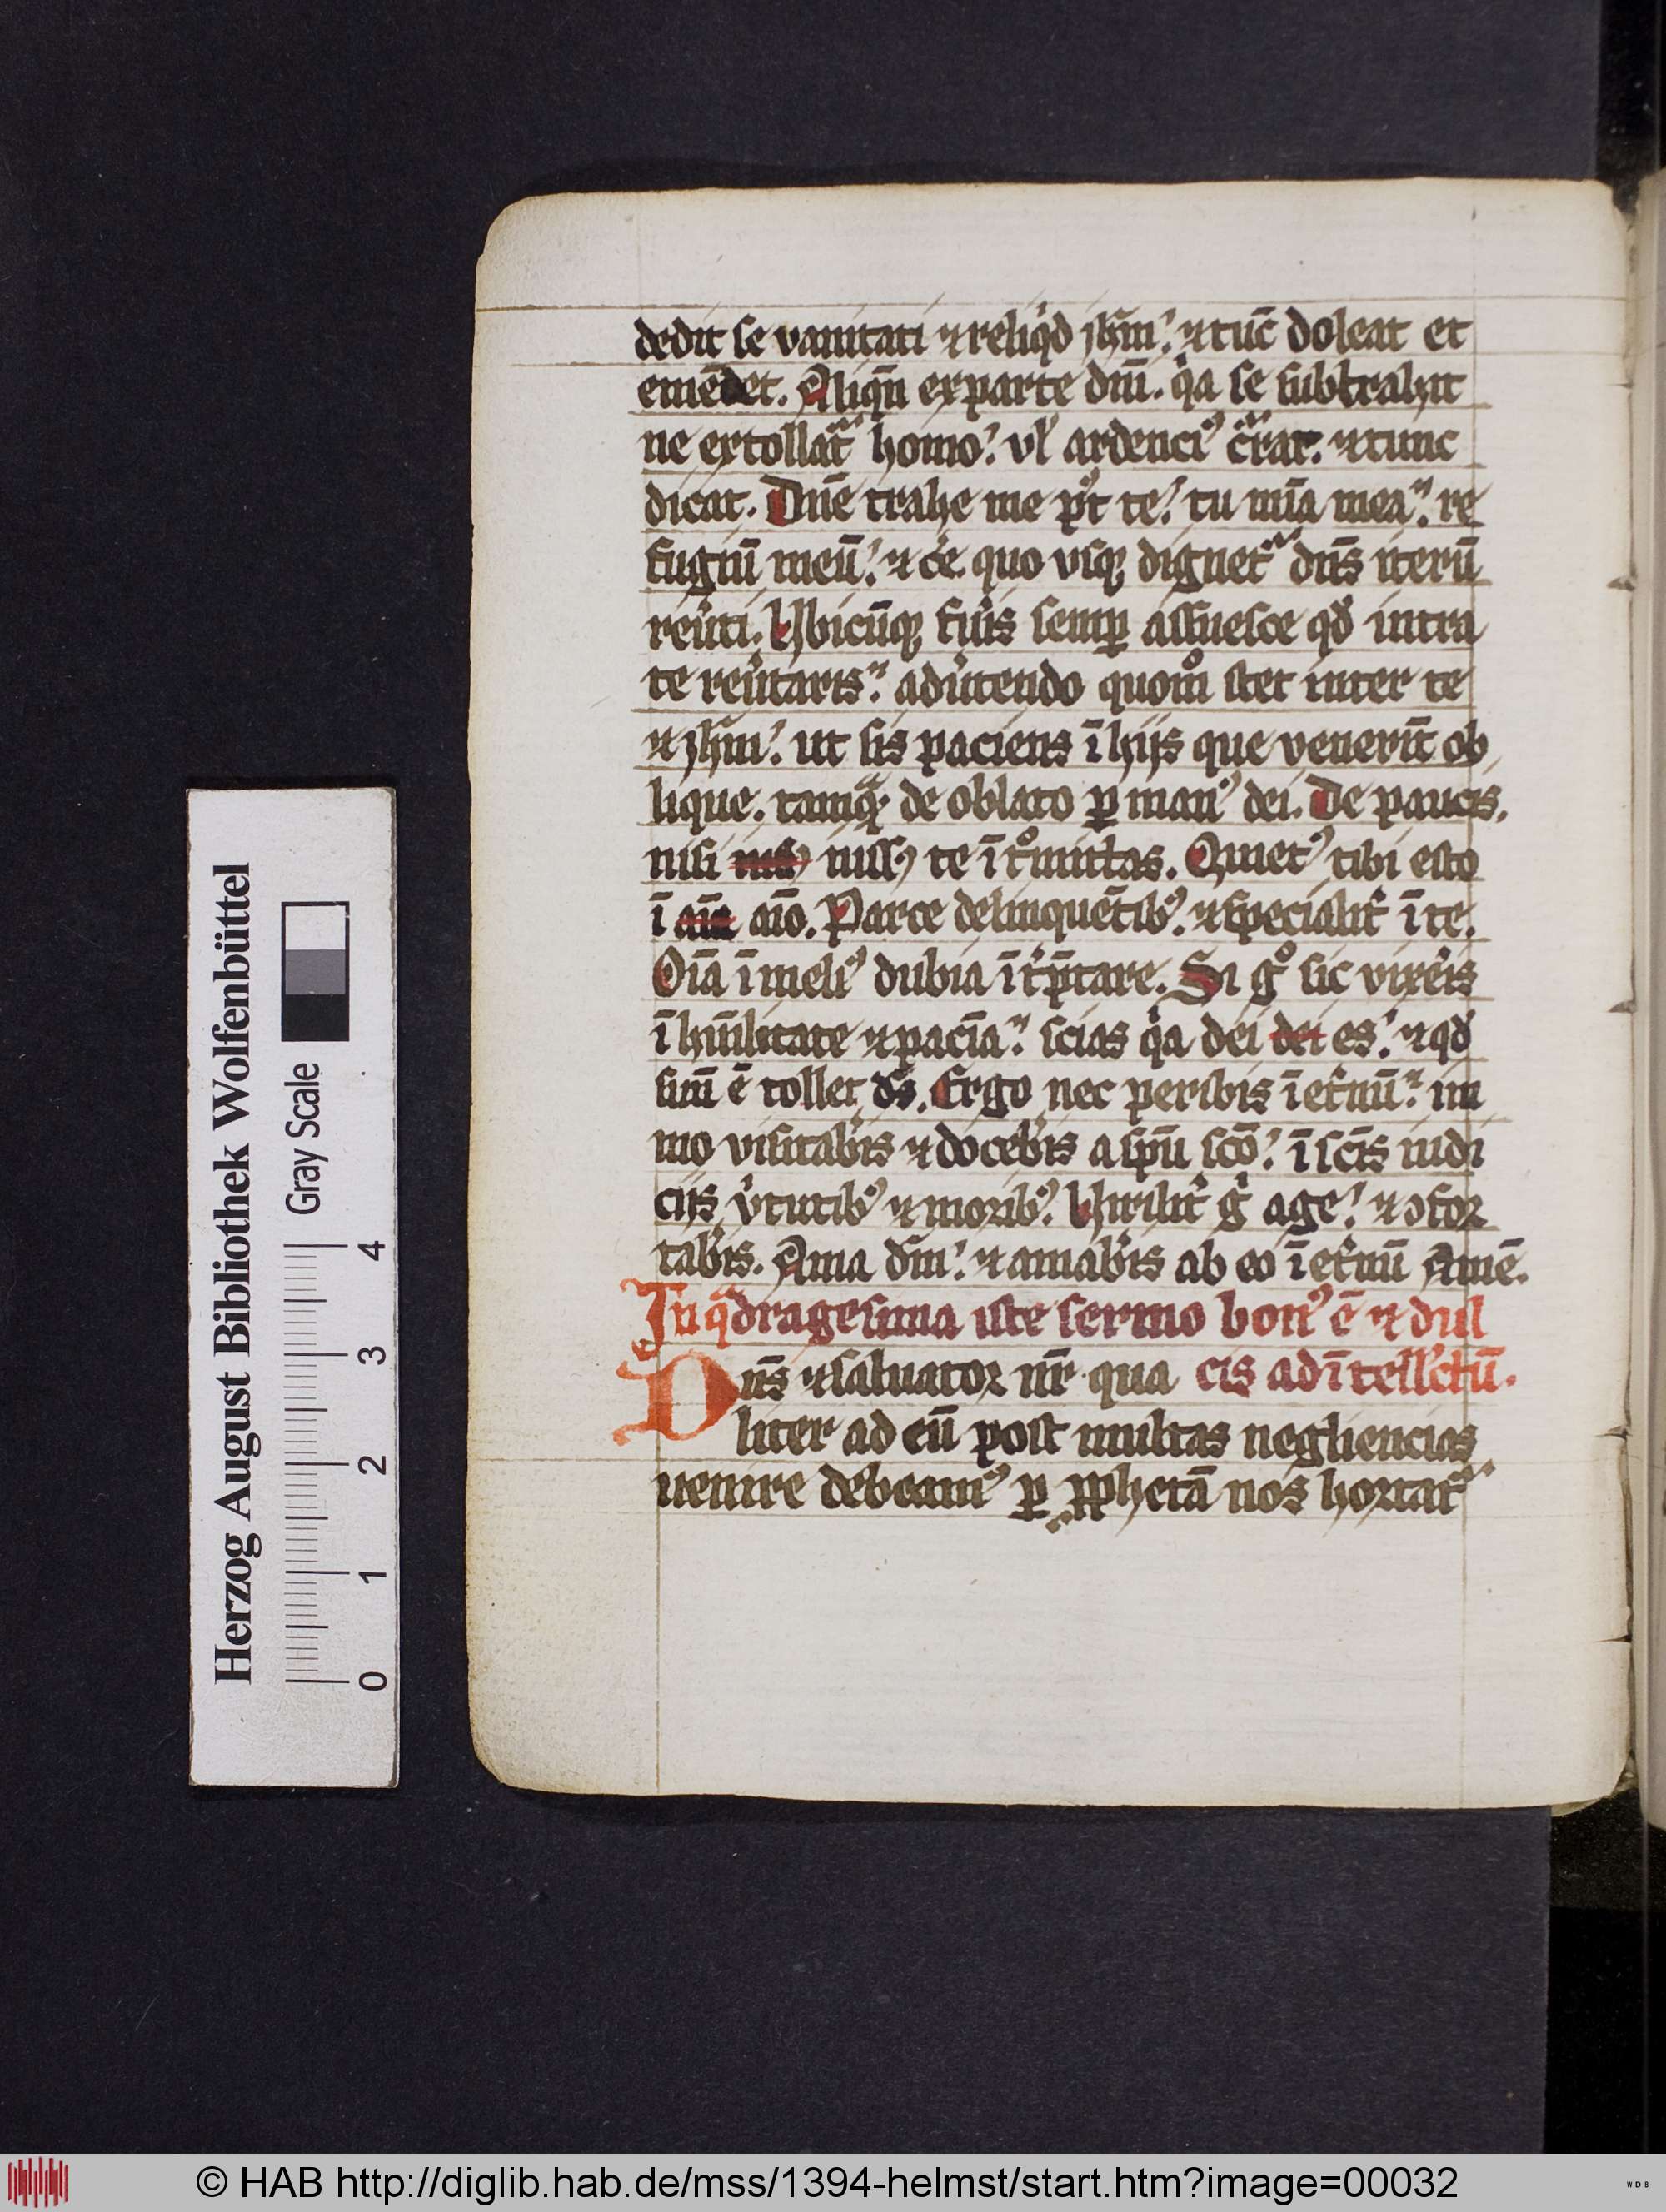 dedit se vanitati ⁊ reliq̇d jhm̄. ⁊ tūc doleat et
emēdet. Aliqn̄ ex parte dn̄i. q̇a se subtrahit
ne extollat᷑ homo. vl̓ ardenciꝰ q̄rat᷑. ⁊ tunc
dicat. Dn̄e trahe me pꝰt te. tu mīa mea. re
fugiū meū. ⁊ ce. quo vsqꝫ dignet᷑ dn̄s iterū
reu̓ti. Vbicūqꝫ fu̓is semꝑ assuesce qd̓ intra
te reu̓taris. adu̓tendo quom̊ stet inter te
⁊ jhm̄. ut sis paciens ī hijs que venerīt ob
lique. tamqᷓ de oblato ꝑ manꝰ dei. De paucis,
nisi missꝯ te īt̊mittas. Quietꝰ tibi esto
ī aīo. Parce delinquētibꝰ. ⁊ specialit̓ ī te.
Oīa ī meliꝰ dubia īt̓p̄tare. Si gͦ sic vixe̓is
ī hūilitate ⁊ pacīa. scias q̇a dei dei es. ⁊ qd̓
suū ē tollet ds̄. Ergo nec peribis ī et̓nū. im
mo visitab̓is ⁊ doceb̓is a spū scō. ī scīs iudi
ciis v̓tutibꝰ ⁊ moribꝰ. Virilit̓ g̓ age. ⁊ ꝯfor
tab̓is. Ama dm̄. ⁊ amab̓is ab eo ī et̓nū Amē.
In qᷓdragesima iste sermo bonꝰ ē ⁊ dul
cis ad ītell̓ctū.
Dn̄s ⁊ saluator nr̄ qua
liter ad eū post multas negliencias
uenire debeamꝰ ꝑ ꝓphetā nos hortat᷑
Herzog August Bibliothek Wolfenbüttel
Gray Scale
0 1 2 3 4
© HAB http://diglib.hab.de/mss/1394-helmst/start.htm?image=00032
WDB